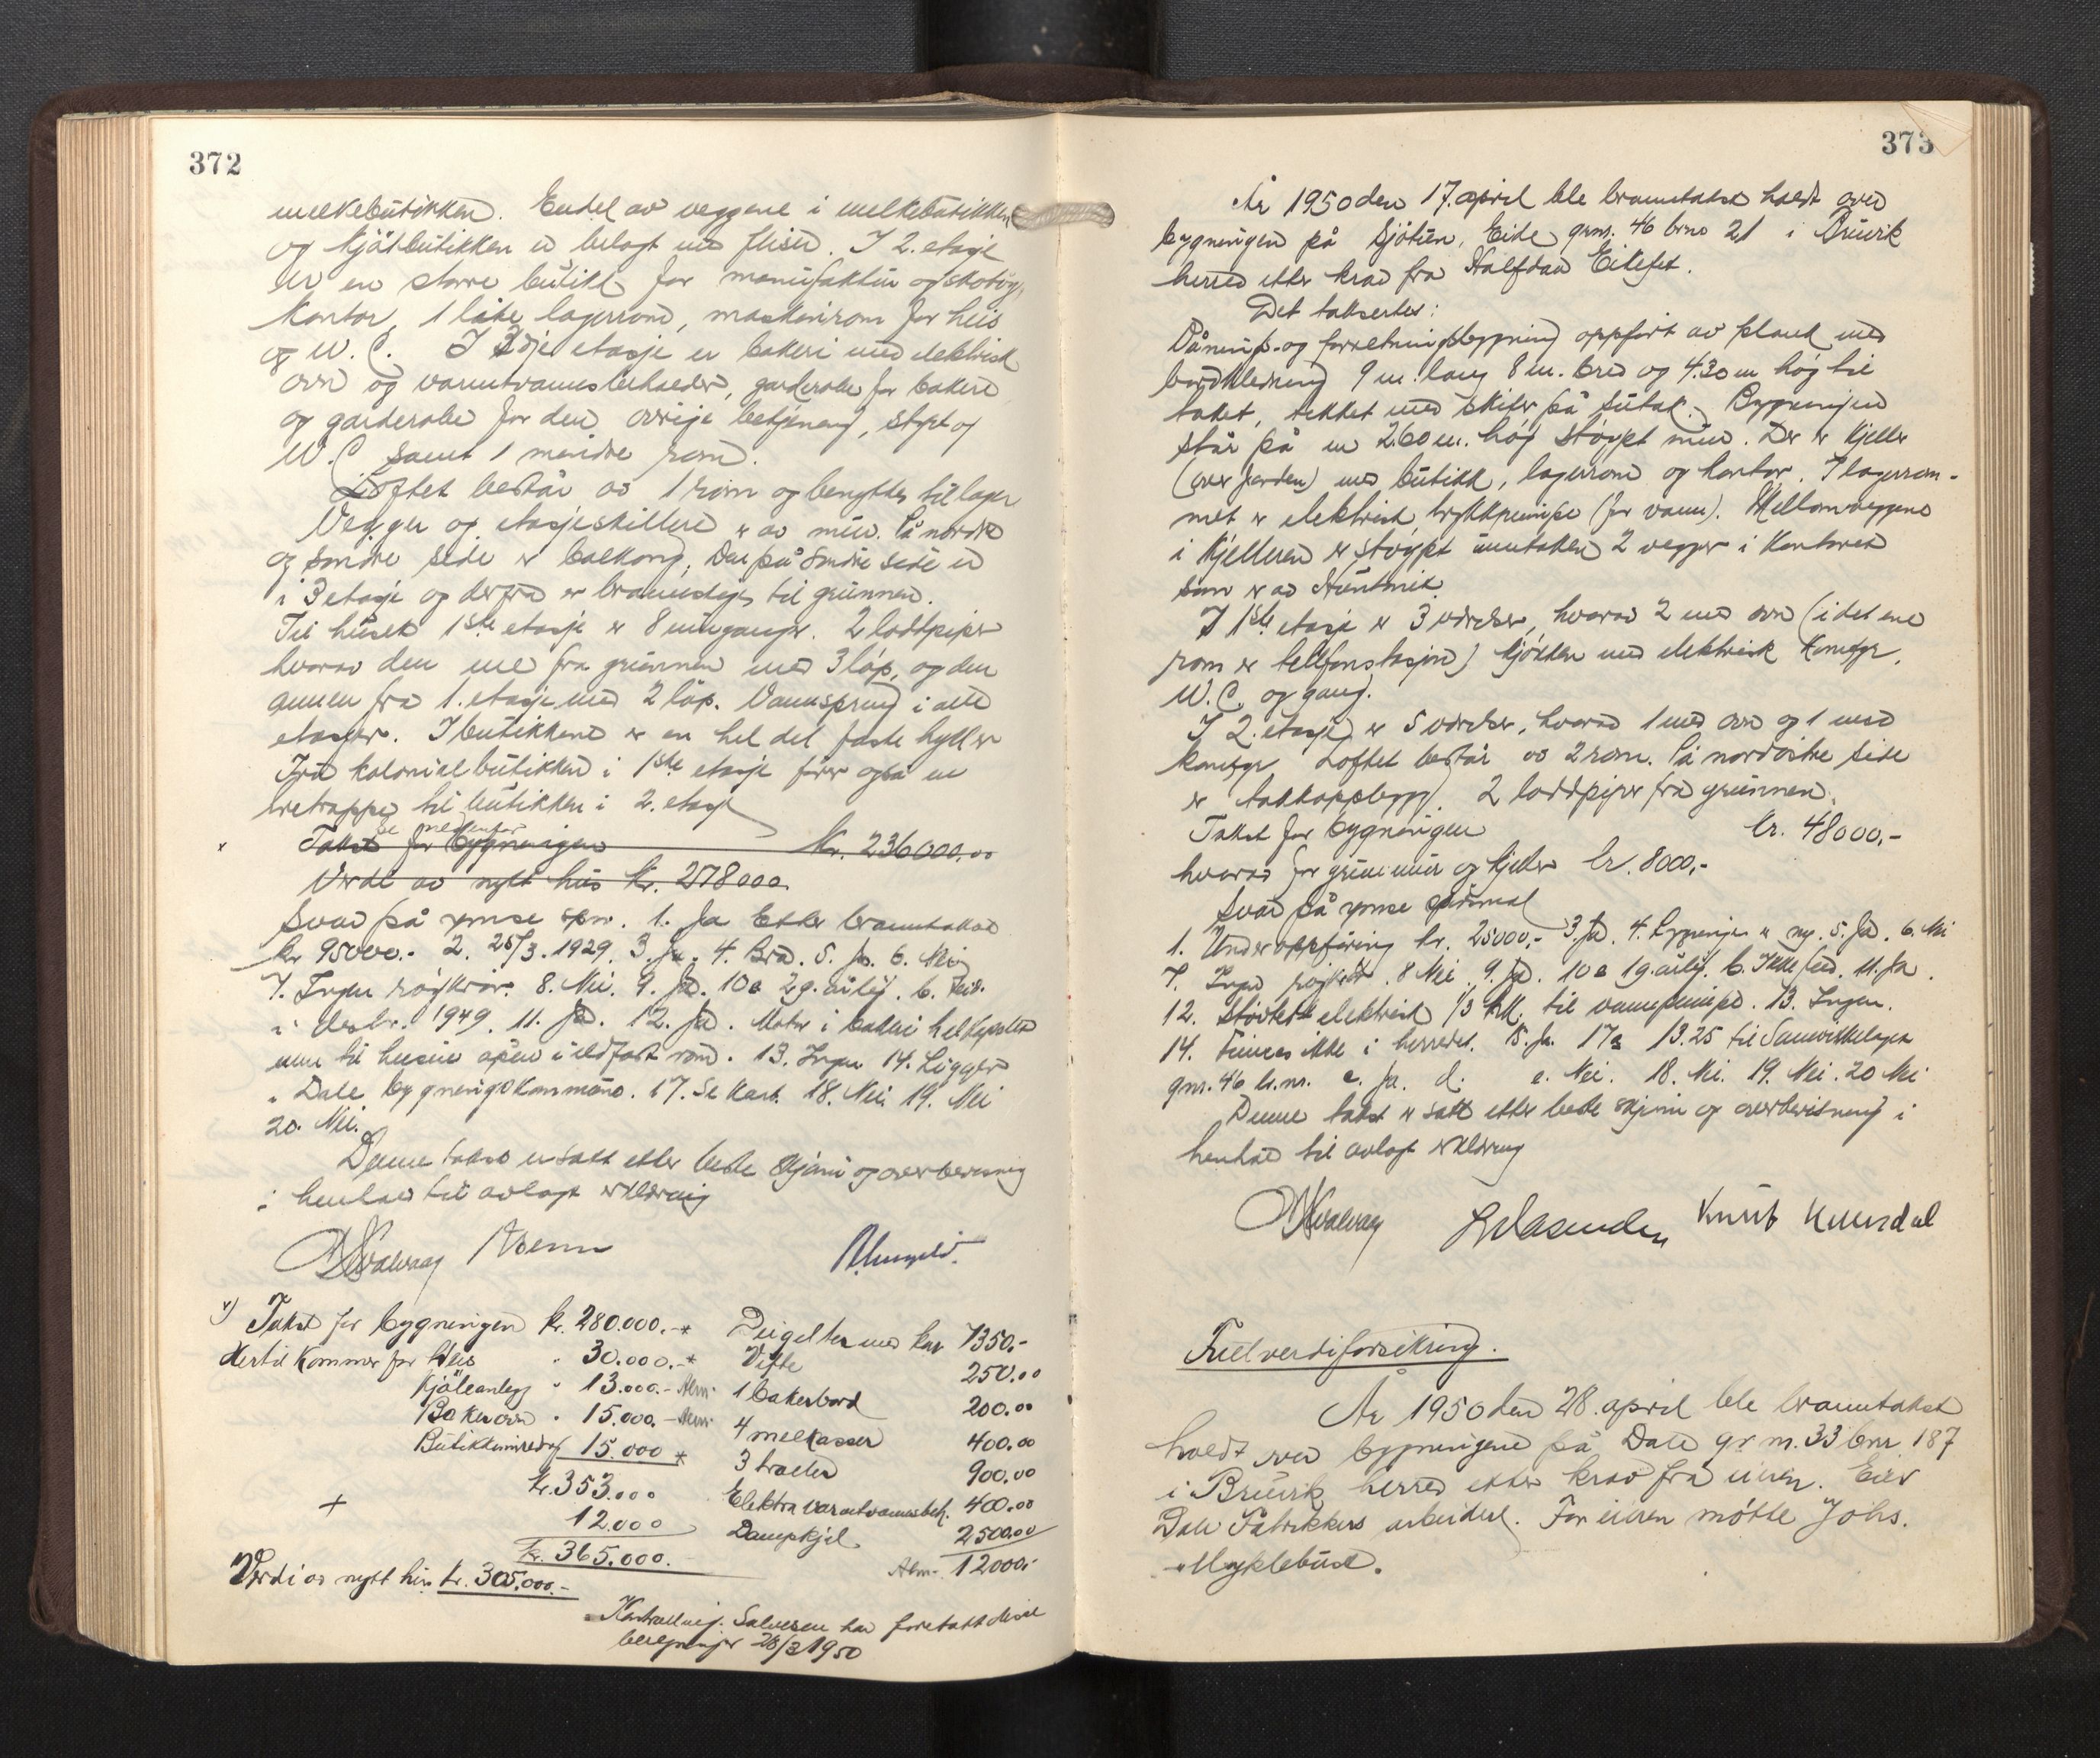 372
melkebutikken. Endel av veggene i melkebutikken
og kjøtbutikken er belagt med fliser. I 2. etasje
er en større butikk for manufaktur og skotøy,
kontor, 1 lite lagerrom, maskinrom for heis
og W.C. I 3dje etasje er bakeri med elektrisk
ovn og varmtvannsbeholder, garderobe for bakere
og garderobe for den øvrige betjening,
W.C. samt 1 mindre rom.
Loftet består av 1 rom og benyttes til lager
Vegger og etasjeskillere er av mur. På nordre
og søndre side er balkong. Den på søndre side er
i 3 etasje og derfra er branndstige til grunnen.
Til husets 1ste etasje er 8 innganger. 2 loddpiper
hvorav den ene fra grunnen med 3 løp, og den
annen fra 1. etasje med 2 løp. Vannspring i alle
etasjer. I butikkene er en hel del faste hyller
Fra kolonialbutikken i 1ste etasje fører også en
tretrapp til butikken i 2. etasje
se nedenfor
x Takst for bygningen Kr. 236000.00
Verdi av nytt hus kr. 278000.
Svar på ymse spm. 1. Ja Etter branntakst
kr 95000.- 2. 25/3. 1929. 3. Ja. 4. Bra. 5. Ja. 6. Nei
7. Ingen røykvar. 8. Nei. 9. Ja. 10a 2 g. årlig. b. Feid.
i desbr. 1949. 11. Ja. 12. Ja. Motor i bakeri helkapslet
men til heisen åpen i ildfast rom. 13. Ingen 14. Ligger
i Dale bygningskommune. 17. Se kart. 18. Nei. 19. Nei
20. Nei.
Denne takst er satt etter beste skjønn og overbevisning
i henhold til avlagt erklæring
x) Takst for bygningen kr. 280.000.- *
Hertil kommer for Heis " 30.000.- *
Kjøleanlegg " 13.000.- Alm.
Bakerovn " 15.000.- Alm.
Butikkinnredng 15.000 *
kr. 353.000
+ 12.000
kr. 365.000.-
Verdi av nytt hus kr. 305.000.-
Deigelter med kar 1350.-
Vifte 250.00
1 bakerbord 200.00
4 melkasser 400.00
3 traller 900.00
Elektr. varmtvannsbeh. 400.00
Dampkjel 2500.00
Alm. 12000.-
Kontrolling. Salvesen har foretatt disse
beregninger 28/3 1950
373
År 1950 den 17. april ble branntakst holdt over
bygningen på Sjøtun, Eide gnr. 46 brno 21 i Bruvik
herred etter krav fra Halfdan Eikefet.
Det takseres:
Vånings- og forretningsbygning oppført av plank med
bordkledning 9 m. lang 8 m. bred og 4.30 m høg til
taket, tekket med skifer på sutak. Bygningen
står på en 2.60 m. høg støypt mur. Der er kjeller
(over jorden) med butikk, lagerrom og kontor. I lagerrom-
met er elektrisk trykkpumpe (for vann). Mellomveggene
i kjelleren er støypt unntaken 2 vegger i kontoret
som er av Huntonit.
I 1ste etasje er 3 værelser, hvorav 2 med ovn (i det ene
rom er tellfonstasjon) kjøkken med elektrisk komfyr,
W.C. og gang.
I 2. etasje er 5 værelser, hvorav 1 med ovn og 1 med
komfyr Loftet består av 2 rom. På nordøstre side
er takkoppbygg. 2 loddpiper fra grunnen.
Takst for bygningen kr. 48000.-
hvorav for grunnmur og kjeller kr. 8000.-
Svar på ymse spørsmål
1. Under oppføring kr. 25000.- 3. Ja. 4. bygningen er ny. 5. Ja. 6. Nei
7. Ingen røykvar. 8 Nei. 9. Ja. 10a 1 g. årlig. b. Ikke feid. 11. Ja.
12. Støvtett elektrisk 1/3 HK. til vannpumpe. 13. Ingen.
14. Finnes ikke i herredet. 15. Ja. 17a 13.25 til Samvirkelaget
gnr. 46 b.nr. c. Ja. d. e. Nei. 18. Nei. 19. Nei. 20 Nei
Denne takst er satt etter beste skjønn og overbevisning i
henhold til avlagt erklæring
Fullverdiforsikring.
År 1950 den 28. april ble branntakst
holdt over bygningene på Dale gr m. 33 bnr 187
i Bruvik herred etter krav fra eieren. Eier
Dale Fabrikkers arbeiderl. For eieren møtte Johs.
Myklebust.